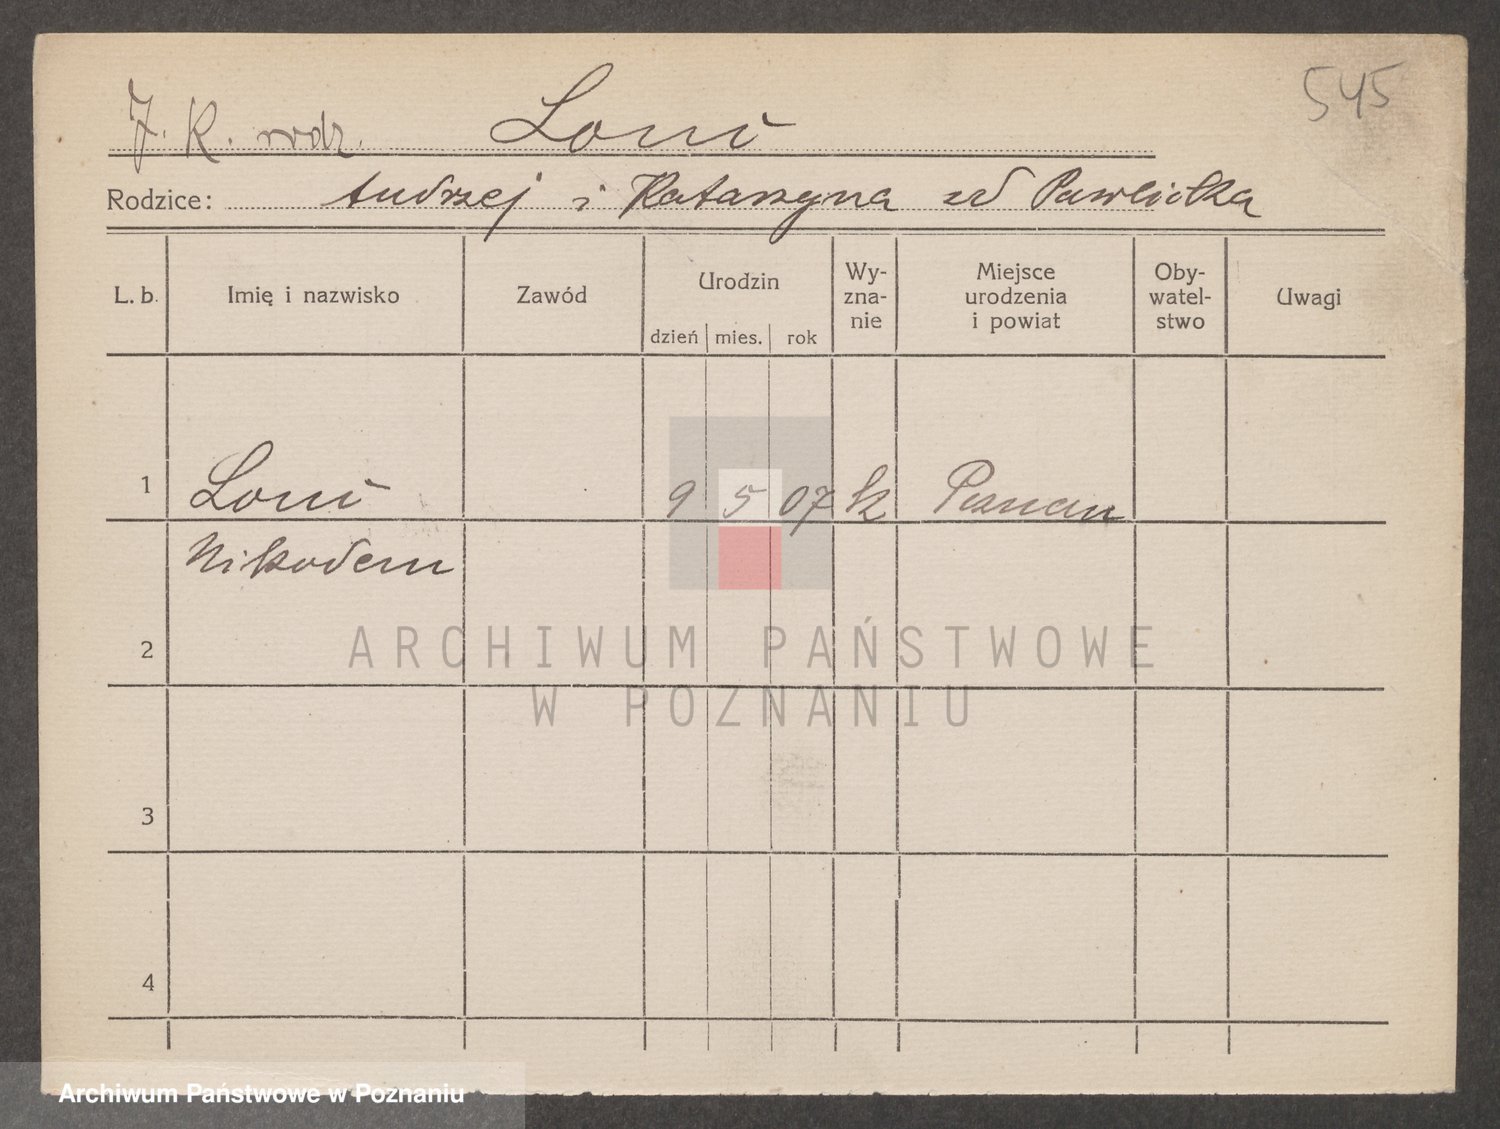 545
J. K. rodz. Lonc
Rodzice: Andrzej i Katarzyna zd Pawlicka
L. b. Imię i nazwisko Zawód Urodzin dzień mies. rok Wy- zna- nie Miejsce urodzenia i powiat Oby- watel- stwo Uwagi
1 Lonc 9 5 07 k Poznań
Nikodem
2
ARCHIWUM PAŃSTWOWE
W POZNANIU
3
4
Archiwum Państwowe w Poznaniu